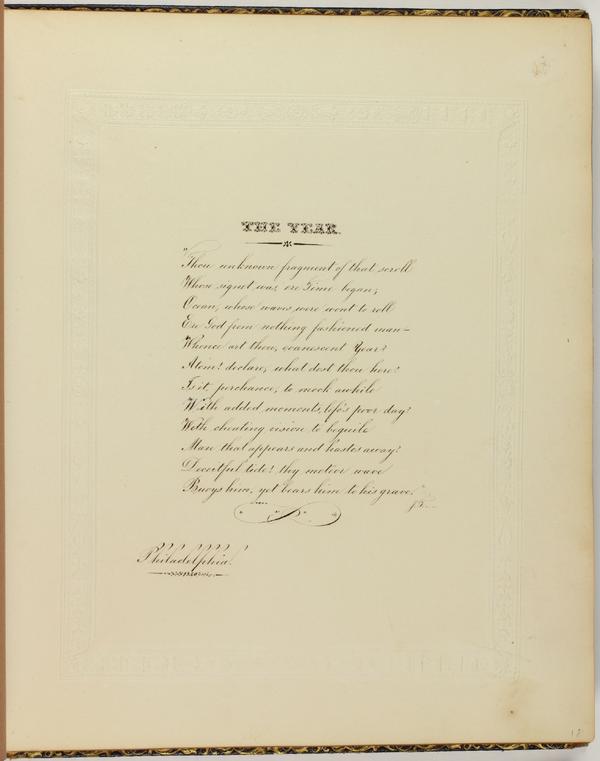 THE YEAR.
"Thou unknown fragment of that scroll
Whose signet was, ere Time began;
Ocean, whose waves were wont to roll
Ere God from nothing fashioned man—
Whence art thou, evanescent Year?
Atom! declare, what dost thou here?
Is it, perchance, to mock awhile
With added moments, life's poor day?
With cheating vision to beguile
Man that appears and hastes away?
Deceitful tide! thy meteor wave
Buoys him, yet bears him to his grave."
Philadelphia.